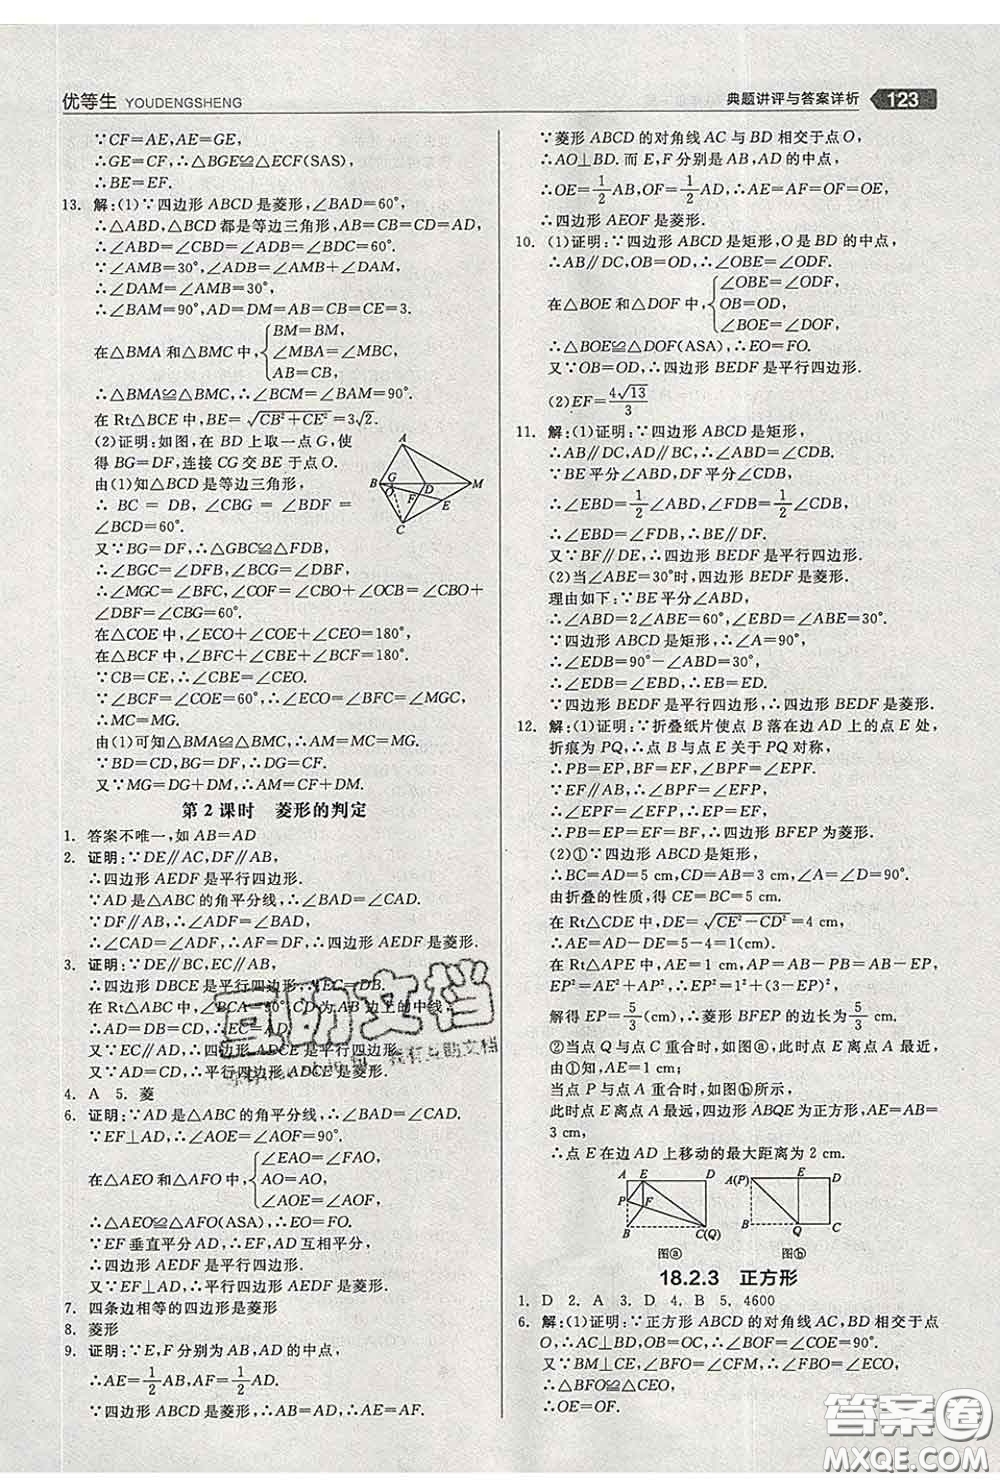 优等生 YOUDENGSHENG
典题讲评与答案详析 123
∵CF=AE,AE=GE,
∴GE=CF,∴△BGE≌△ECF(SAS),
∴BE=EF.
13. 解:(1)∵四边形ABCD是菱形,∠BAD=60°,
∴△ABD,△CBD都是等边三角形,AB=CB=CD=AD,
∴∠ABD=∠CBD=∠ADB=∠BDC=60°.
∵∠AMB=30°,∠ADB=∠AMB+∠DAM,
∴∠DAM=∠AMB=30°,
∴∠BAM=90°,AD=DM=AB=CB=CE=3.
在△BMA和△BMC中,{BM=BM,
∠MBA=∠MBC,
AB=CB,
∴△BMA≌△BMC,∴∠BCM=∠BAM=90°.
在Rt△BCE中,BE=√(CB²+CE²)=3√2.
(2)证明:如图,在BD上取一点G,使
得BG=DF,连接CG交BE于点O.
由(1)知△BCD是等边三角形,
∴BC=BD,∠CBG=∠BDF=
∠BCD=60°.
A
B G D M
O F E
C
又∵BG=DF,∴△GBC≌△FDB,
∴∠BGC=∠DFB,∠BCG=∠DBF,
∴∠MGC=∠BFC,∠COF=∠CBO+∠OCB=∠CBO+
∠DBF=60°.
在△COE中,∠ECO+∠COE+∠CEO=180°,
在△BCF中,∠BFC+∠BCF+∠CBF=180°.
∵CB=CE,∴∠CBE=∠CEO.
∵∠BCF=∠COE=60°,∴∠ECO=∠BFC=∠MGC,
∴MC=MG.
由(1)可知△BMA≌△BMC,∴MA=MC=MG.
∵BD=CD,BG=DF,∴CF=DG.
又∵MG=DG+DM,∴AM=CF+DM.
第2课时 菱形的判定
1. 答案不唯一,如AB=AD
2. 证明:∵DE∥AC,DF∥AB,
∴四边形AEDF是平行四边形.
∵AD是△ABC的角平分线,∴∠BAD=∠CAD.
∵DF∥AB,∴∠ADF=∠BAD,
∴∠CAD=∠ADF,∴AF=DF,∴四边形AEDF是菱形.
3. 证明:∵DE∥BC,EC∥AB,
∴四边形DBCE是平行四边形,∴EC=DB.
在Rt△ABC中,∠BCA=90°,CD为AB边上的中线,
∴AD=DB=CD,∴EC=AD.
又∵EC∥AD,∴四边形ADCE是平行四边形.
又∵AD=CD,∴四边形ADCE是菱形.
4. A 5. 菱
6. 证明:∵AD是△ABC的角平分线,∴∠BAD=∠CAD.
∵EF⊥AD,∴∠AOE=∠AOF=90°.
在△AEO和△AFO中,{∠EAO=∠FAO,
AO=AO,
∠AOE=∠AOF,
∴△AEO≌△AFO(ASA),∴EO=FO.
∵EF垂直平分AD,∴EF,AD互相平分,
∴四边形AEDF是平行四边形.
又∵EF⊥AD,∴平行四边形AEDF是菱形.
7. 四条边相等的四边形是菱形
8. 菱形
9. 证明:∵E,F分别为AB,AD的中点,
∴AE=1/2AB,AF=1/2AD.
∵四边形ABCD是菱形,∴AB=AD,∴AE=AF.
∵菱形ABCD的对角线AC与BD相交于点O,
∴AO⊥BD.而E,F分别是AB,AD的中点,
∴OE=1/2AB,OF=1/2AD,∴AE=AF=OF=OE,
∴四边形AEOF是菱形.
10. (1)证明:∵四边形ABCD是矩形,O是BD的中点,
∴AB∥DC,OB=OD,∴∠OBE=∠ODF.
在△BOE和△DOF中,{∠OBE=∠ODF,
OB=OD,
∠BOE=∠DOF,
∴△BOE≌△DOF(ASA),∴EO=FO.
又∵OB=OD,∴四边形BEDF是平行四边形.
(2)EF=4√13/3
11. 解:(1)证明:∵四边形ABCD是矩形,
∴AB∥DC,AD∥BC,∴∠ABD=∠CDB.
∵BE平分∠ABD,DF平分∠CDB,
∴∠EBD=1/2∠ABD,∠FDB=1/2∠CDB,
∴∠EBD=∠FDB,∴BE∥DF.
又∵BF∥DE,∴四边形BEDF是平行四边形.
(2)当∠ABE=30°时,四边形BEDF是菱形.
理由如下:∵BE平分∠ABD,
∴∠ABD=2∠ABE=60°,∠EBD=∠ABE=30°.
∵四边形ABCD是矩形,∴∠A=90°,
∴∠EDB=90°-∠ABD=30°,
∴∠EDB=∠EBD=30°,∴EB=ED.
又∵四边形BEDF是平行四边形,∴四边形BEDF是菱形.
12. 解:(1)证明:∵折叠纸片使点B落在边AD上的点E处,
折痕为PQ,∴点B与点E关于PQ对称,
∴PB=EP,BF=EF,∠BPF=∠EPF.
∵EF∥AB,∴∠BPF=∠EFP,
∴∠EPF=∠EFP,∴EP=EF,
∴BP=BF=EF=EP,∴四边形BFEP为菱形.
(2)①∵四边形ABCD是矩形,
∴BC=AD=5 cm,CD=AB=3 cm,∠A=∠D=90°.
由折叠的性质,得CE=BC=5 cm.
在Rt△CDE中,DE=√(CE²-CD²)=4 cm,
∴AE=AD-DE=5-4=1(cm).
在Rt△APE中,AE=1 cm,AP=3-PB=3-EP,
EP²=AE²+AP²,即EP²=1²+(3-EP)²,
解得EP=5/3(cm),∴菱形BFEP的边长为5/3 cm.
②当点Q与点C重合时,如图ⓐ,此时点E离点A最近,
由①知,此时AE=1 cm;
当点P与点A重合时,如图ⓑ所示,
此时点E离点A最远,四边形ABQE为正方形,AE=AB=
3 cm,
∴点E在边AD上移动的最大距离为2 cm.
A E D
P F
B C(Q)
图ⓐ
A(P) E D
B Q C
图ⓑ
18.2.3 正方形
1. D 2. A 3. D 4. B 5. 4600
6. 解:(1)证明:∵正方形ABCD的对角线AC,BD相交于点
O,∴AC⊥BD,OB=OC,∴∠BOF=∠COE=90°.
又∵BM⊥CE,∠BFO=∠CFM,∴∠BFO=∠ECO,
∴△BFO≌△CEO,
∴OE=OF.
互助文档
答案圈
MXQE.COM